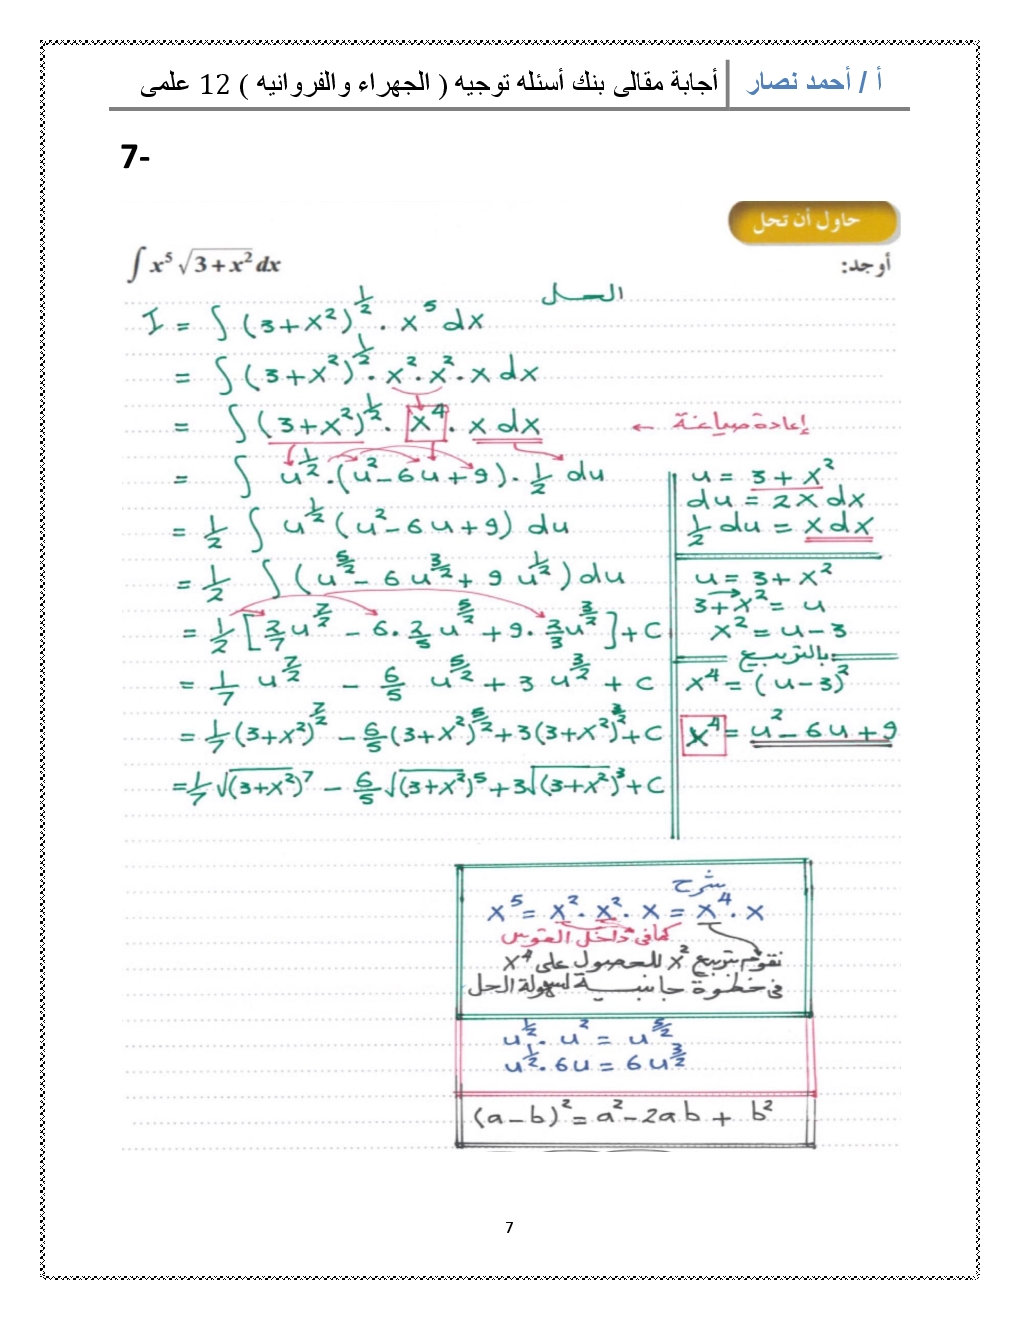 أ / أحمد نصار
أجابة مقالى بنك أسئله توجيه ( الجهراء والفروانيه ) 12 علمى
7-
حاول أن تحل
أوجد:
∫ x⁵ √(3 + x²) dx
الحل
I = ∫ (3+x²)^(1/2) · x⁵ dx
= ∫ (3+x²)^(1/2) · x² · x² · x dx
= ∫ (3+x²)^(1/2) · x⁴ · x dx ← إعادة صياغة
= ∫ u^(1/2) · (u² − 6u + 9) · 1/2 du
= 1/2 ∫ u^(1/2) (u² − 6u + 9) du
= 1/2 ∫ (u^(5/2) − 6u^(3/2) + 9 u^(1/2)) du
= 1/2 [2/7 u^(7/2) − 6 · 2/5 u^(5/2) + 9 · 2/3 u^(3/2)] + C
= 1/7 u^(7/2) − 6/5 u^(5/2) + 3 u^(3/2) + C
= 1/7 (3+x²)^(7/2) − 6/5 (3+x²)^(5/2) + 3(3+x²)^(3/2) + C
= 1/7 √(3+x²)⁷ − 6/5 √(3+x²)⁵ + 3√(3+x²)³ + C
u = 3 + x²
du = 2x dx
1/2 du = x dx
u = 3 + x²
3 + x² = u
x² = u − 3
بالتربيع
x⁴ = (u − 3)²
x⁴ = u² − 6u + 9
شرح
x⁵ = x² · x² · x = x⁴ · x
كما فى داخل القوس
نقوم بتربيع x² للحصول على x⁴
فى خطوة جانبية لسهولة الحل
u^(1/2) · u² = u^(5/2)
u^(1/2) · 6u = 6u^(3/2)
(a − b)² = a² − 2ab + b²
7